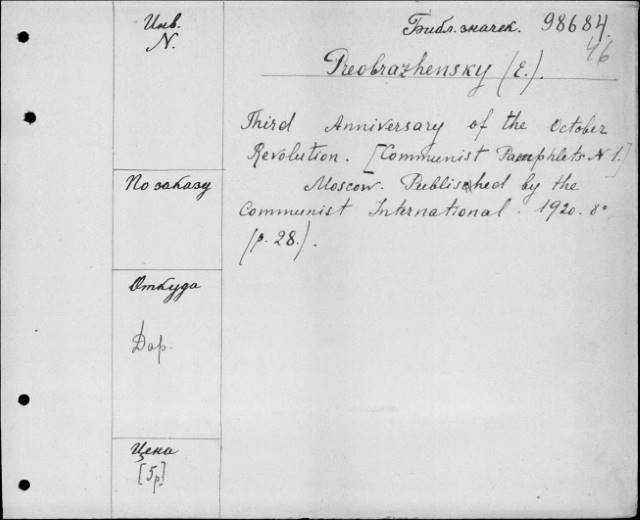 Инв.
N.
Библ. значек. 98684.
46
Preobrazhensky (E.).
Third Anniversary of the October
Revolution. [Communist Pamphlets N 1.]
По заказу
Moscow. Published by the
Communist International. 1920. 8°
(p. 28.).
Откуда
Дар.
Цена
[5р]